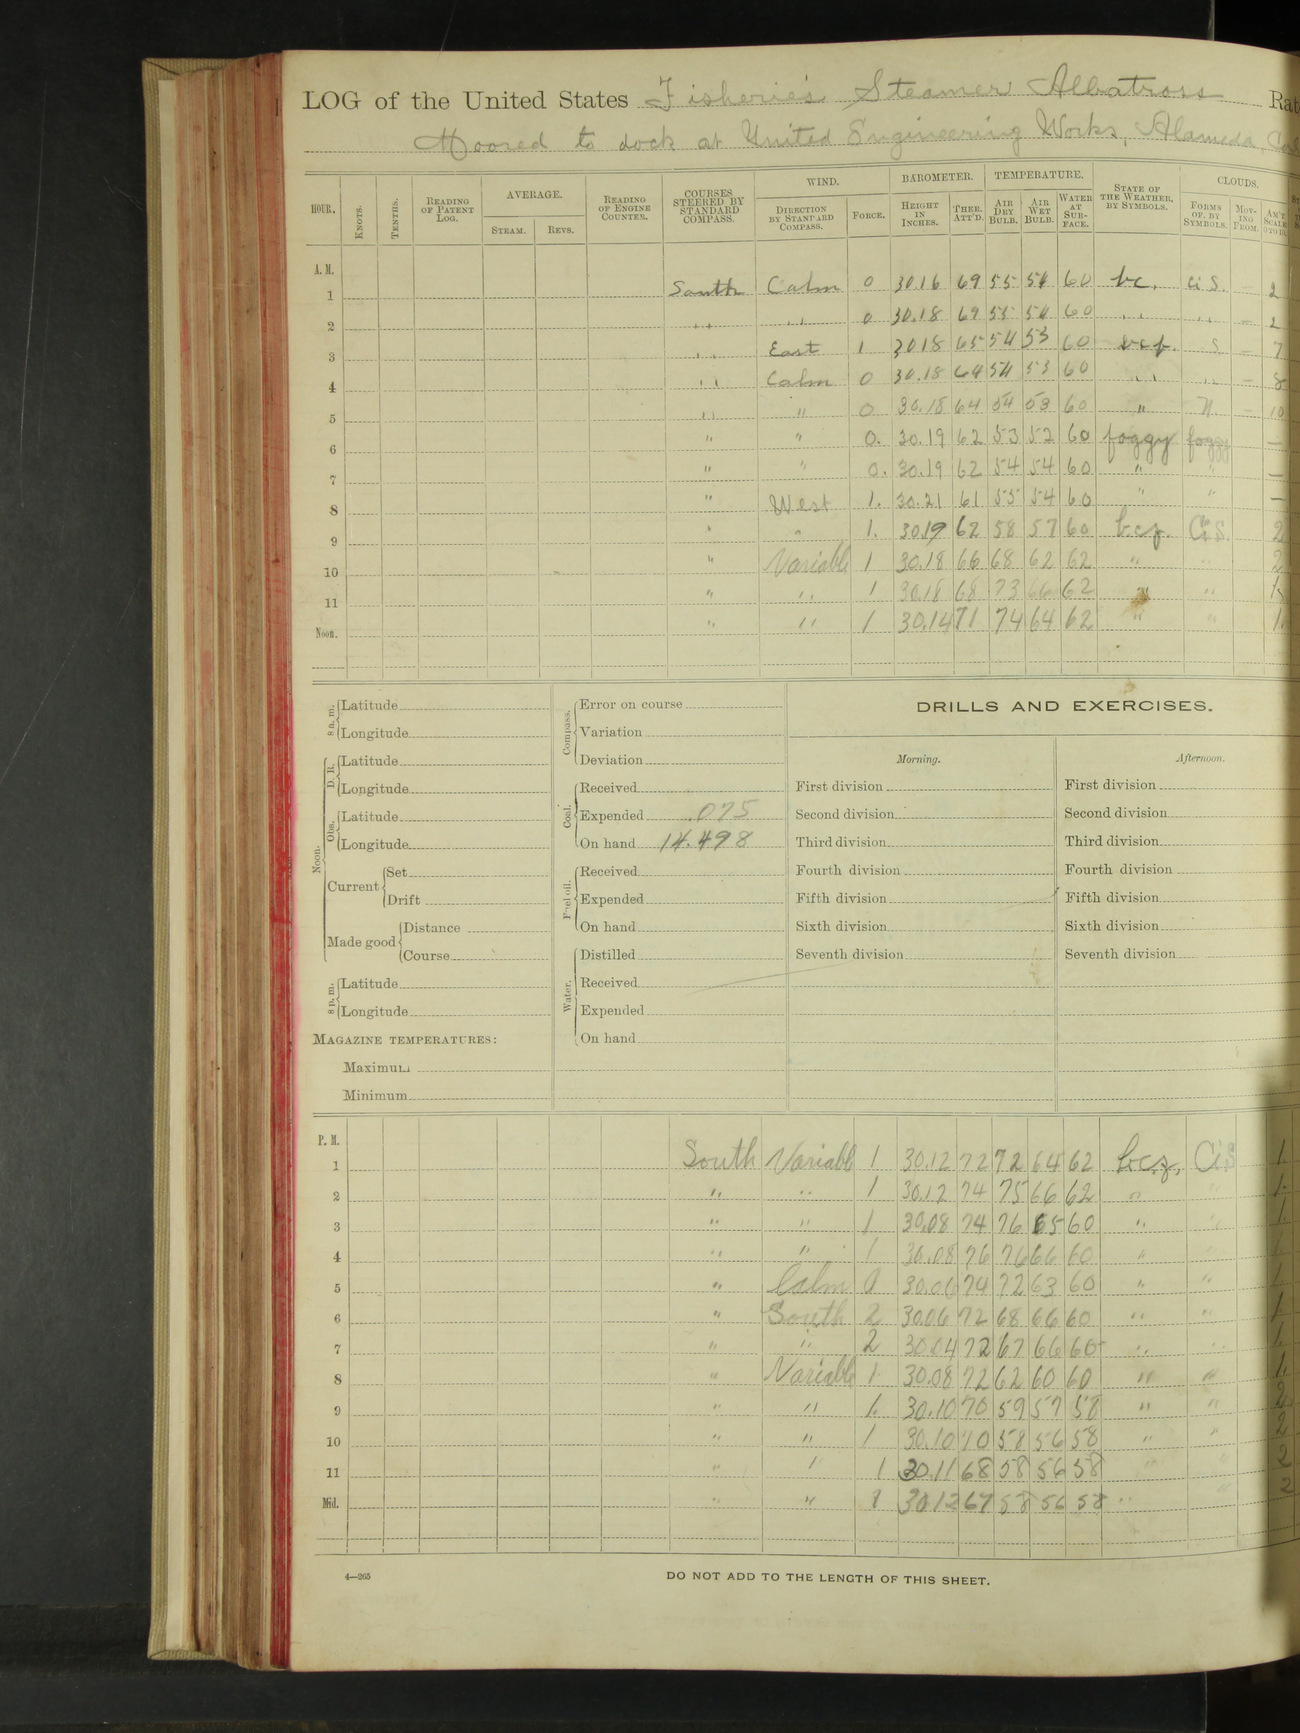 LOG of the United States Fisheries Steamer Albatross Rat
Moored to dock at United Engineering Works, Alameda, Cal
HOUR. KNOTS. TENTHS. READING OF PATENT LOG. AVERAGE. STEAM. REVS. READING OF ENGINE COUNTER. COURSES STEERED BY STANDARD COMPASS. WIND. DIRECTION BY STANDARD COMPASS. FORCE. BAROMETER. HEIGHT IN INCHES. THER. ATT'D. TEMPERATURE. AIR DRY BULB. AIR WET BULB. WATER AT SURFACE. STATE OF THE WEATHER, BY SYMBOLS. CLOUDS. FORMS OF, BY SYMBOLS. MOVING FROM. AM'T SCALE 0 TO 10.
A. M.
1 South Calm 0 30.16 69 55 54 60 bc. Ci S. — 2
2 " " 0 30.18 69 55 54 60 " " — 2
3 " East 1 30.18 65 54 53 60 bcf. S — 7
4 " Calm 0 30.18 64 54 53 60 " " — 8
5 " " 0 30.18 64 54 53 60 " N. — 10
6 " " 0. 30.19 62 53 52 60 foggy foggy —
7 " " 0. 30.19 62 54 54 60 " " —
8 " West 1. 30.21 61 55 54 60 " " —
9 " " 1. 30.19 62 58 57 60 bcz. Ci S. 2
10 " Variable 1 30.18 66 68 62 62 " " 2
11 " " 1 30.18 68 73 66 62 " " 1
Noon. " " 1 30.14 71 74 64 62 " " 1.
8 a. m. Latitude
Longitude
Noon. D. R. Latitude
Longitude
Obs. Latitude
Longitude
Current Set
Drift
Made good Distance
Course
8 p. m. Latitude
Longitude
MAGAZINE TEMPERATURES:
Maximum
Minimum
Compass. Error on course
Variation
Deviation
Coal. Received
Expended .075
On hand 14.498
Fuel oil. Received
Expended
On hand
Water. Distilled
Received
Expended
On hand
DRILLS AND EXERCISES.
Morning. Afternoon.
First division First division
Second division Second division
Third division Third division
Fourth division Fourth division
Fifth division Fifth division
Sixth division Sixth division
Seventh division Seventh division
P. M.
1 South Variable 1 30.12 72 72 64 62 bcz. Ci S 1.
2 " " 1 30.12 74 75 66 62 " " 1.
3 " " 1 30.08 74 76 65 60 " " 1.
4 " " 1 30.08 76 76 66 60 " " 1
5 " Calm 0 30.06 74 72 63 60 " " 1
6 " South 2 30.06 72 68 66 60 " " 1
7 " " 2 30.04 72 67 66 60 " " 1.
8 " Variable 1 30.08 72 62 60 60 " " 1.
9 " " 1. 30.10 70 59 57 58 " " 2
10 " " 1 30.10 70 58 56 58 " " 2
11 " " 1 30.11 68 58 56 58 " " 2
Mid. " " 1 30.12 67 58 56 58 " " 2
4—265 DO NOT ADD TO THE LENGTH OF THIS SHEET.